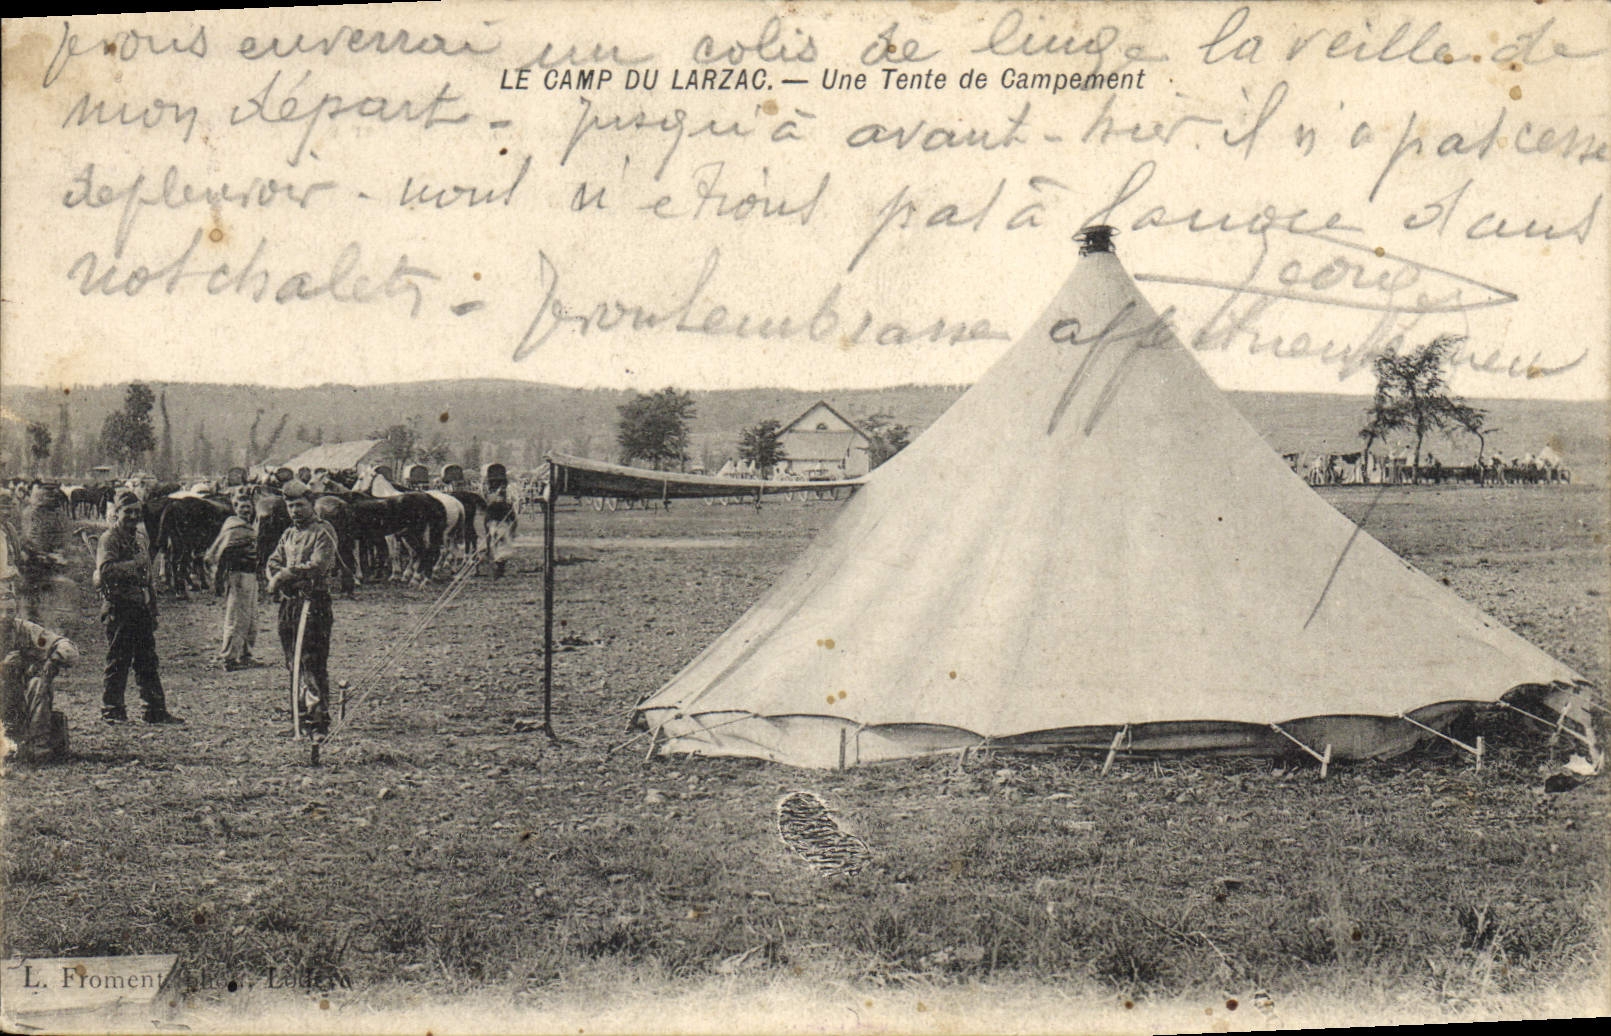 Je vous enverrai un colis de linge la veille de
LE CAMP DU LARZAC. — Une Tente de Campement
mon départ - Jusqu'à avant-hier il n'a pas cessé
de pleuvoir - nous n'étions pas à l'ance dans
nos chalets - Je vous embrasse affectueusement
Georges
L. Froment, phot. Lodève